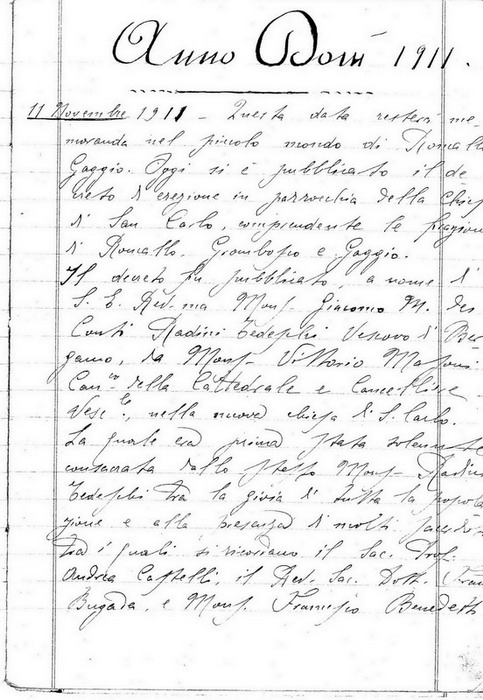 Anno Dom̄i 1911.
11 Novembre 1911 - Questa data resterà me-
moranda nel piccolo mondo di Roncallo
Gaggio. Oggi si è pubblicato il de
creto d'erezione in parrocchia della Chies
di San Carlo, comprendente le frazion
di Roncallo, Grombosco e Gaggio.
Il decreto fu pubblicato, a nome di
S. E. Rev.ma Mons. Giacomo M. dei
Conti Radini Tedeschi Vescovo di Ber
gamo, da Mons. Vittorio
Can.co della Cattedrale e Cancelliere
Vesc.le, nella nuova chiesa di S. Carlo.
La quale era prima stata solenneme
consacrata dallo stesso Mons. Radini
Tedeschi tra la gioia di tutta la popola
zione e alla presenza di molti sacerdo
tra i quali si ricordano il Sac. Prof.
Andrea Castelli, il Rev. Sac. Dott. Fran
Bugada, e Mons. Francesco Benedetti